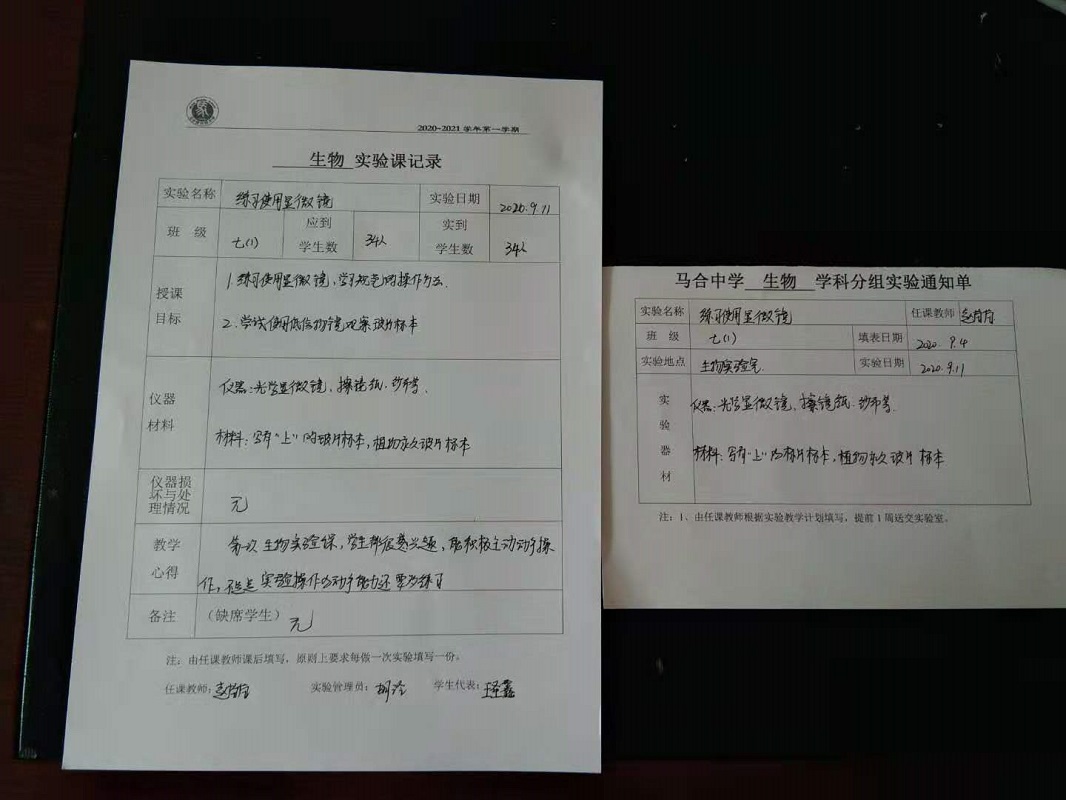 2020-2021 学年第一学期
生物 实验课记录
实验名称 练习使用显微镜 实验日期 2020.9.11
班 级 七(1) 应到学生数 34人 实到学生数 34人
授课目标
1.练习使用显微镜,学习规范的操作方法.
2.尝试使用低倍物镜观察玻片标本
仪器材料
仪器:光学显微镜、擦镜纸、纱布等.
材料:写有"上"的玻片标本,植物永久玻片标本
仪器损坏与处理情况 无
教学心得
第一次生物实验课,学生都很感兴趣,能积极主动动手操
作,不足点实验操作的动手能力还要多练习
备注 (缺席学生) 无
注:由任课教师课后填写,原则上要求每做一次实验填写一份。
任课教师: 实验管理员: 胡泽 学生代表:
马合中学 生物 学科分组实验通知单
实验名称 练习使用显微镜 任课教师
班 级 七(1) 填表日期 2020.9.4
实验地点 生物实验室 实验日期 2020.9.11
实验器材
仪器:光学显微镜、擦镜纸、纱布等.
材料:写有"上"的 ,植物永久玻片标本
注:1、由任课教师根据实验教学计划填写,提前1周送交实验室。